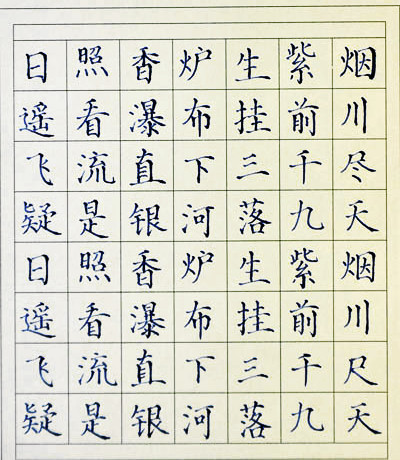 日照香炉生紫烟
遥看瀑布挂前川
飞流直下三千尽
疑是银河落九天
日照香炉生紫烟
遥看瀑布挂前川
飞流直下三千尺
疑是银河落九天